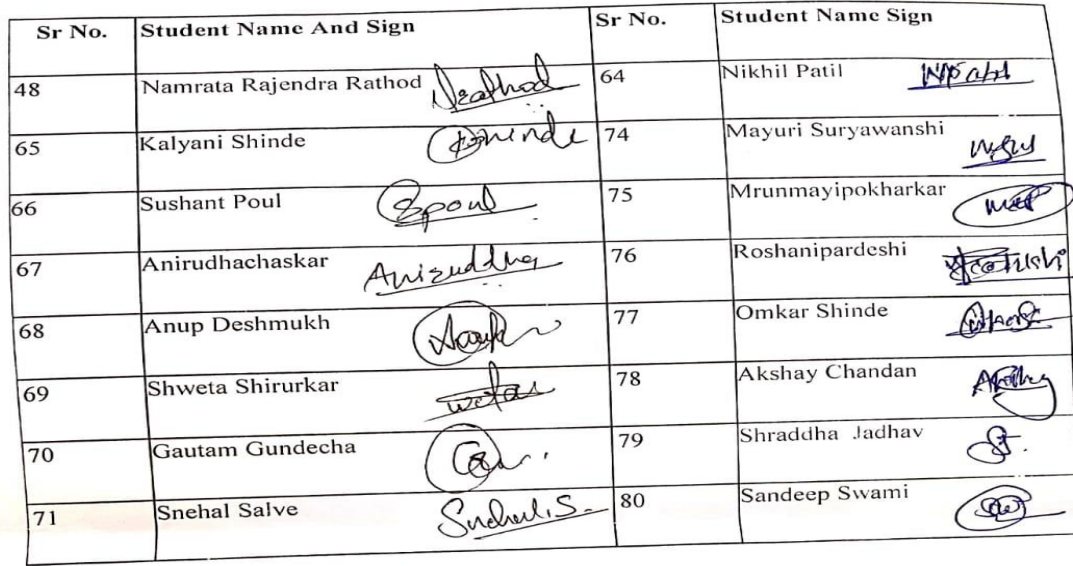 Sr No. Student Name And Sign Sr No. Student Name Sign
48 Namrata Rajendra Rathod Nrathod 64 Nikhil Patil NPatil
65 Kalyani Shinde KShinde 74 Mayuri Suryawanshi
66 Sushant Poul Spoul 75 Mrunmayipokharkar
67 Anirudhachaskar Aniruddha 76 Roshanipardeshi
68 Anup Deshmukh 77 Omkar Shinde
69 Shweta Shirurkar 78 Akshay Chandan
70 Gautam Gundecha 79 Shraddha Jadhav
71 Snehal Salve Snehal.S. 80 Sandeep Swami